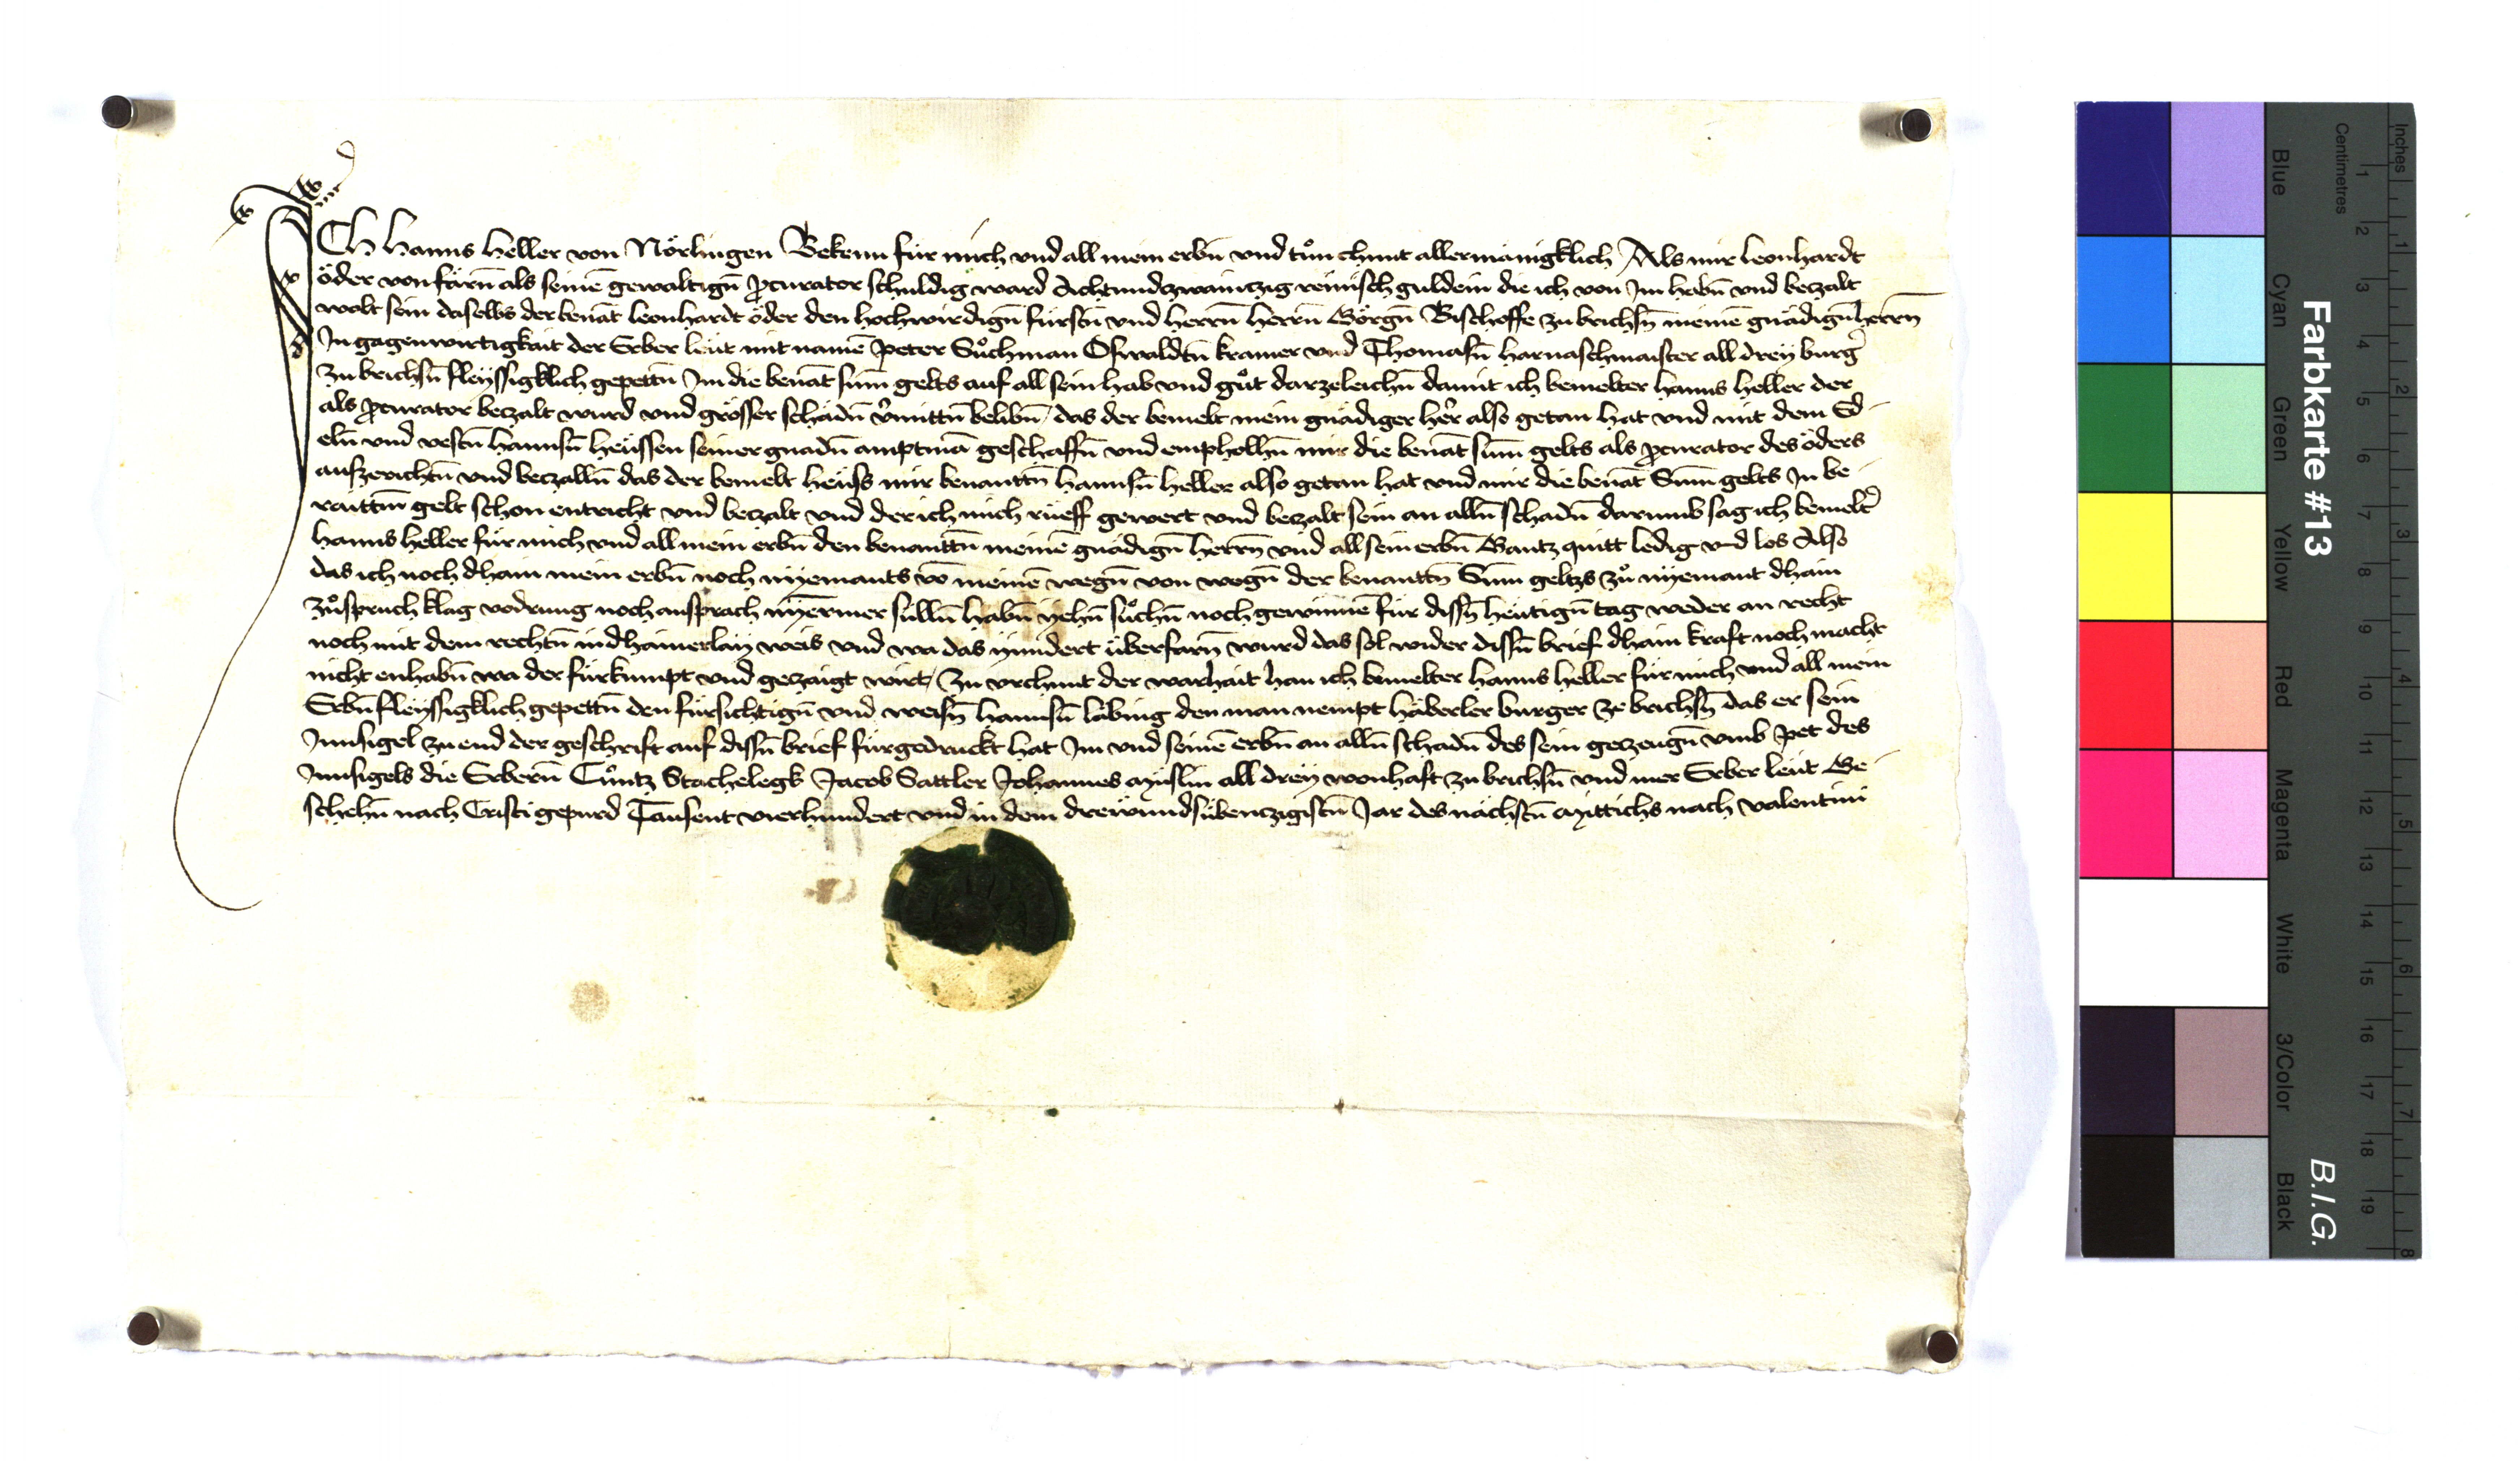 ICh hanns heller von Nörlingen Bekenn für mich vnd all mein erbn̄ vnd tůn chunt allermänigklich Als mir leonhardt
öder von färn̄ als seinē gewaltign̄ ꝓcurator schuldig ward Achtundzwaintzig reinisch guldein die ich von Im habn̄ vnd beczalt
wolt sein daselbs der benāt leonhardt öder den hochwirdign̄ fürstn̄ vnd herrn̄ herrn̄ Görgn̄ Bischoffe zu brichsn̄ meinē gnädign̄ herrn̄
In gagenwirtigkait der Erber leüt mit namē Peter Sůchman Oswaldtn̄ kramer vnd Thomasn̄ harnaschmaister all dreÿ burg̉
zu brichsn̄ fleÿssigklich gepettn̄ Im die benāt sum̄ gelts auf all sein hab vnd gůt darzeleichn̄ damit ich bemelter hanns heller der
als ꝓcurator beczalt wurd vnd grösser schädn̄ v̉mittn̄ belibn̄ / das der bemelt mein gnädiger her̉ also getan hat vnd mit dem Ed
eln̄ vnd vestn̄ hannsn̄ heüssen seiner gnadn̄ amptmā geschaffn̄ vnd emphollhn̄ mir die benāt sum̄ gelts als ꝓcurator des öders
aufzerichtn̄ vnd beczalln̄ das der bemelt heüss mir benanttn̄ hannsn̄ heller also getan hat vnd mir die benāt Sum̄ gelts In be
raittm̄ gelt schon entricht vnd beczalt vnd der ich mich rüeff gewert vnd beczalt sein an alln̄ schadn̄ darumb sag ich bemelt̉
hanns heller für mich vnd all mein erbn̄ den benanttn̄ meinē gnädign̄ herrn̄ vnd all sein erbn̄ Gantz quitt ledig vnd los Also
das ich noch dhain mein erbn̄ noch nÿemants vō meinē wegn̄ von wegn̄ der benanttn̄ Sum̄ geltzs zů nÿemant dhain
zůspruch klag vodrung noch ansprach nÿermer sülln̄ habn̄ Jehn̄ sůchn̄ noch gewinnē für disn̄ heütign̄ tag weder an recht
noch mit dem rechtn̄ in dhainerlaÿ weis vnd wa das ÿndert überfarn̄ wurd das sol wider disn̄ brief dhain kraft noch macht
nicht enhabn̄ wa der fürkumpt vnd geczaigt wirt / Zu vrchunt der warhait han ich bemelter hanns heller für mich vnd all mein
Erbn̄ fleÿssigklich gepettn̄ den fürsichtign̄ vnd weisn̄ hannsn̄ läbing den man nempt häberler burger ze brichsn̄ das er sein
Innsigel zu end der geschrift auf disn̄ brief fürgedruckt hat Im vnd seinē erbn̄ an alln̄ schadn̄ des sein geczeugn̄ vmb pet des
Innsigels die Erbern̄ Cůntz Stachelegk Jacob Sattler Johannes Müslin all dreÿ wonhaft zu brichsn̄ vnd mer Erber leüt Ge
schehn̄ nach Cristi gepurd Tausent vierhundert vnd in dem dreẅundsübenczigistn̄ Jar des nächstn̄ Mittichs nach valentini
Farbkarte #13
B.I.G.
Centimetres
Inches
Blue
Cyan
Green
Yellow
Red
Magenta
White
3/Color
Black
1 2 3 4 5 6 7 8 9 10 11 12 13 14 15 16 17 18 19
1 2 3 4 5 6 7 8